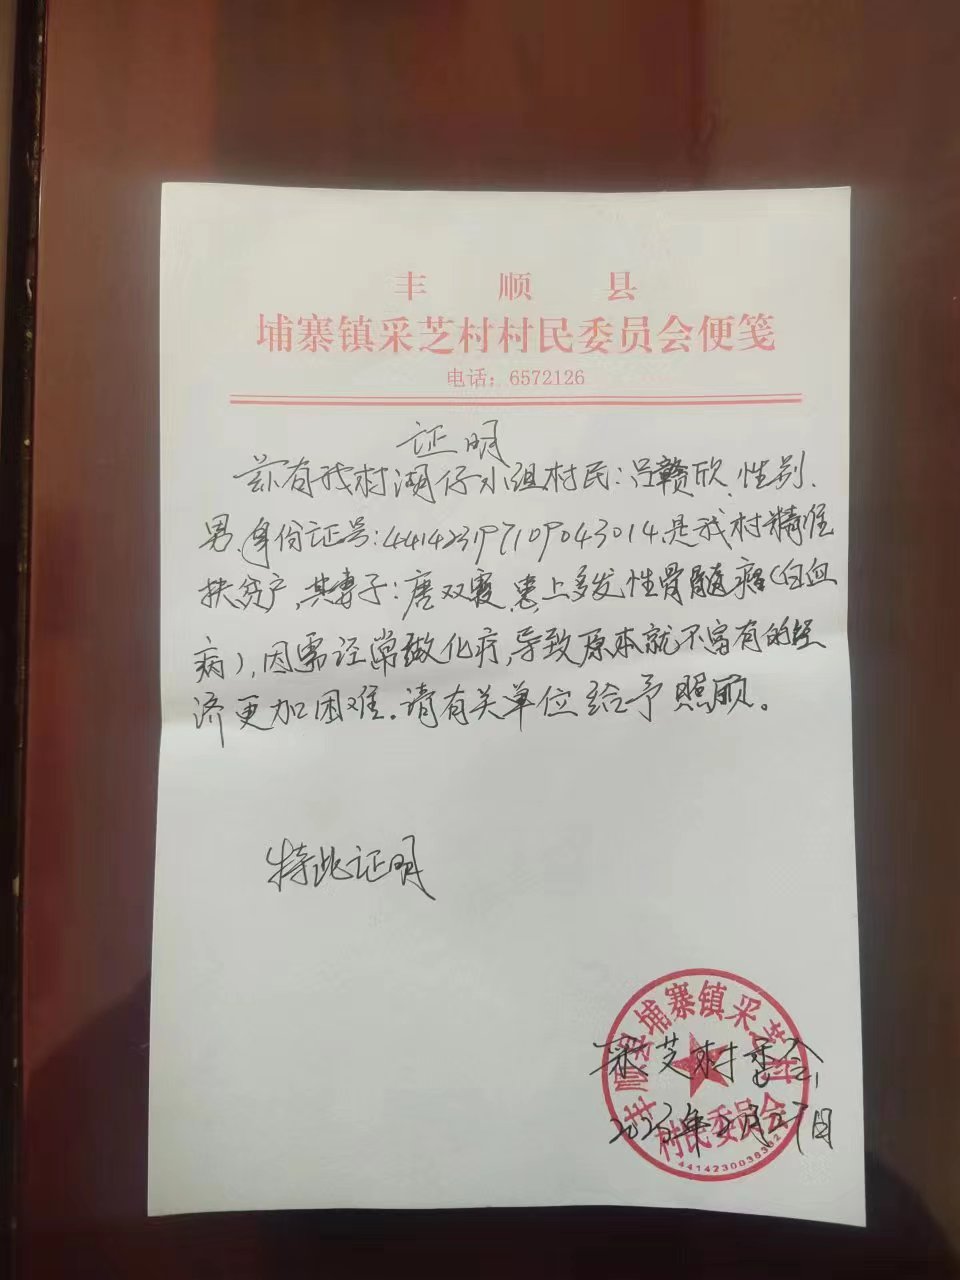 丰顺县
埔寨镇采芝村村民委员会便笺
电话：6572126
证明
兹有我村湖仔小组村民：吕赣欣、性别、
男、身份证号：441423197109043014，是我村精准
扶贫户，其妻子：唐双霞，患上多发性骨髓瘤（白血
病），因需经常做化疗，导致原本就不富有的经
济更加困难。请有关单位给予照顾。
特此证明
丰顺县埔寨镇采芝村
采芝村委会
2023年2月27日
村民委员会
4414230038382